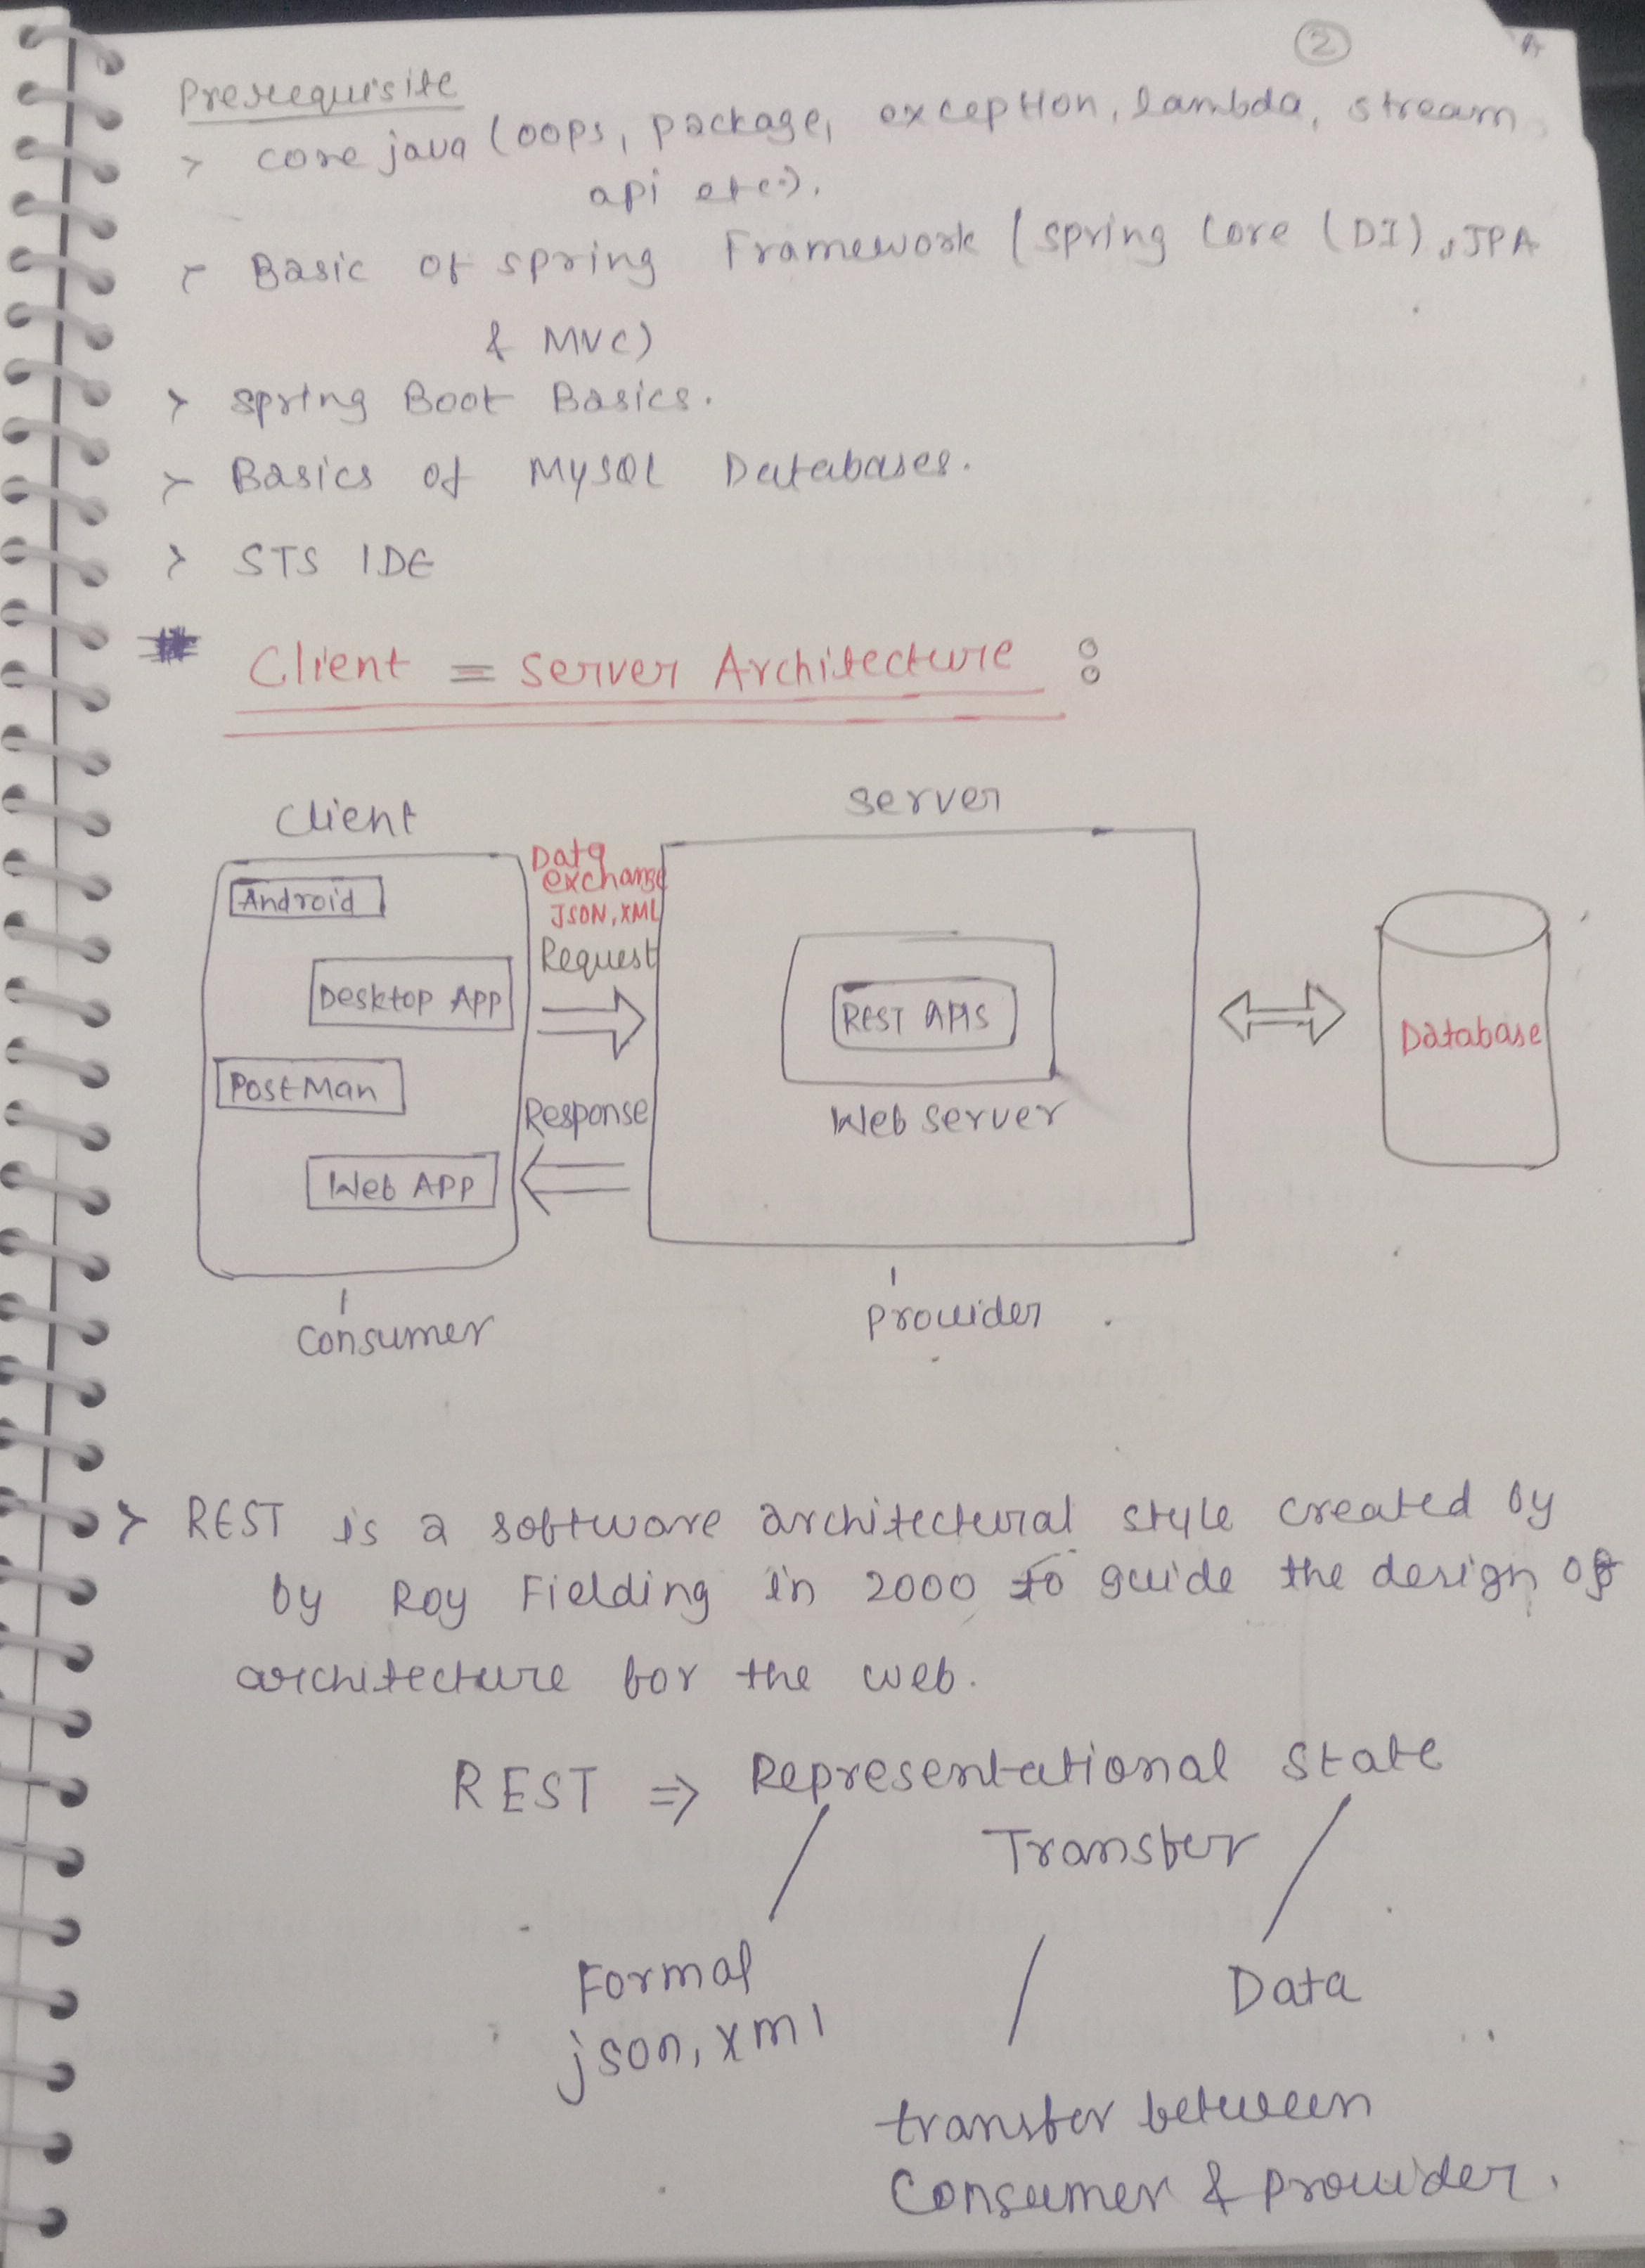 2
Prerequisite
> core java (oops, package, exception, lambda, stream
api etc:).
> Basic of spring Framework (spring Core (DI), JPA
& MVC)
> spring Boot Basics.
> Basics of MySQL Databases.
> STS IDE
# Client = Server Architecture :
Client
Server
Data
exchange
JSON, XML
Android
Request
Desktop App
REST APIS
Database
PostMan
Response
Web Server
Web APP
Consumer
Provider
> REST is a software architectural style created by
by Roy Fielding in 2000 to guide the design of
architecture for the web.
REST => Representational State
Transfer
Format
json, xml
Data
transfer between
Consumer & provider.